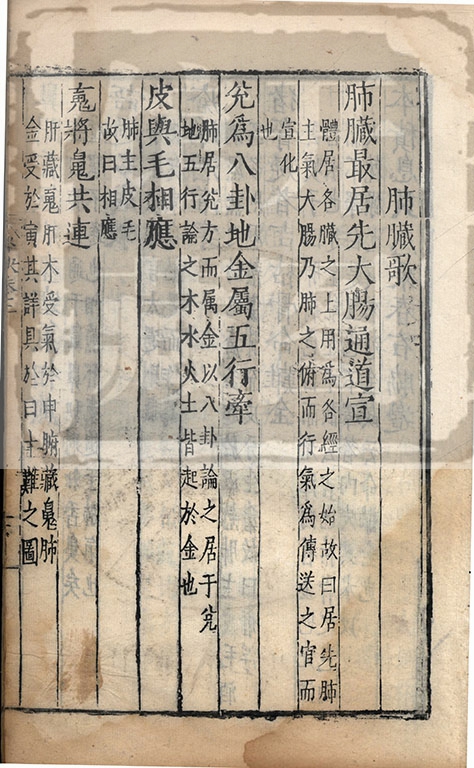 肺臟歌
肺臟最居先大腸通道宣
體居各臟之上用爲各經之始故曰居先肺
主氣大腸乃肺之腑而行氣爲傳送之官而
宣化
也
兊爲八卦地金屬五行牽
肺居兊方而属金以八卦論之居于兊
地五行論之木水火土皆起於金也
皮與毛相應
肺主皮毛
故曰相應
䰟將䰟共連
肝藏䰟肝木受氣於申腑藏䰟肺
金受於寅其詳具於曰主難之圖